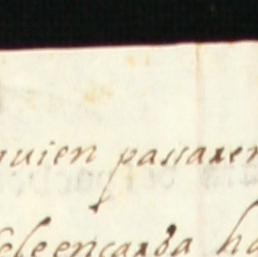 quien passaren
seleencarga ha